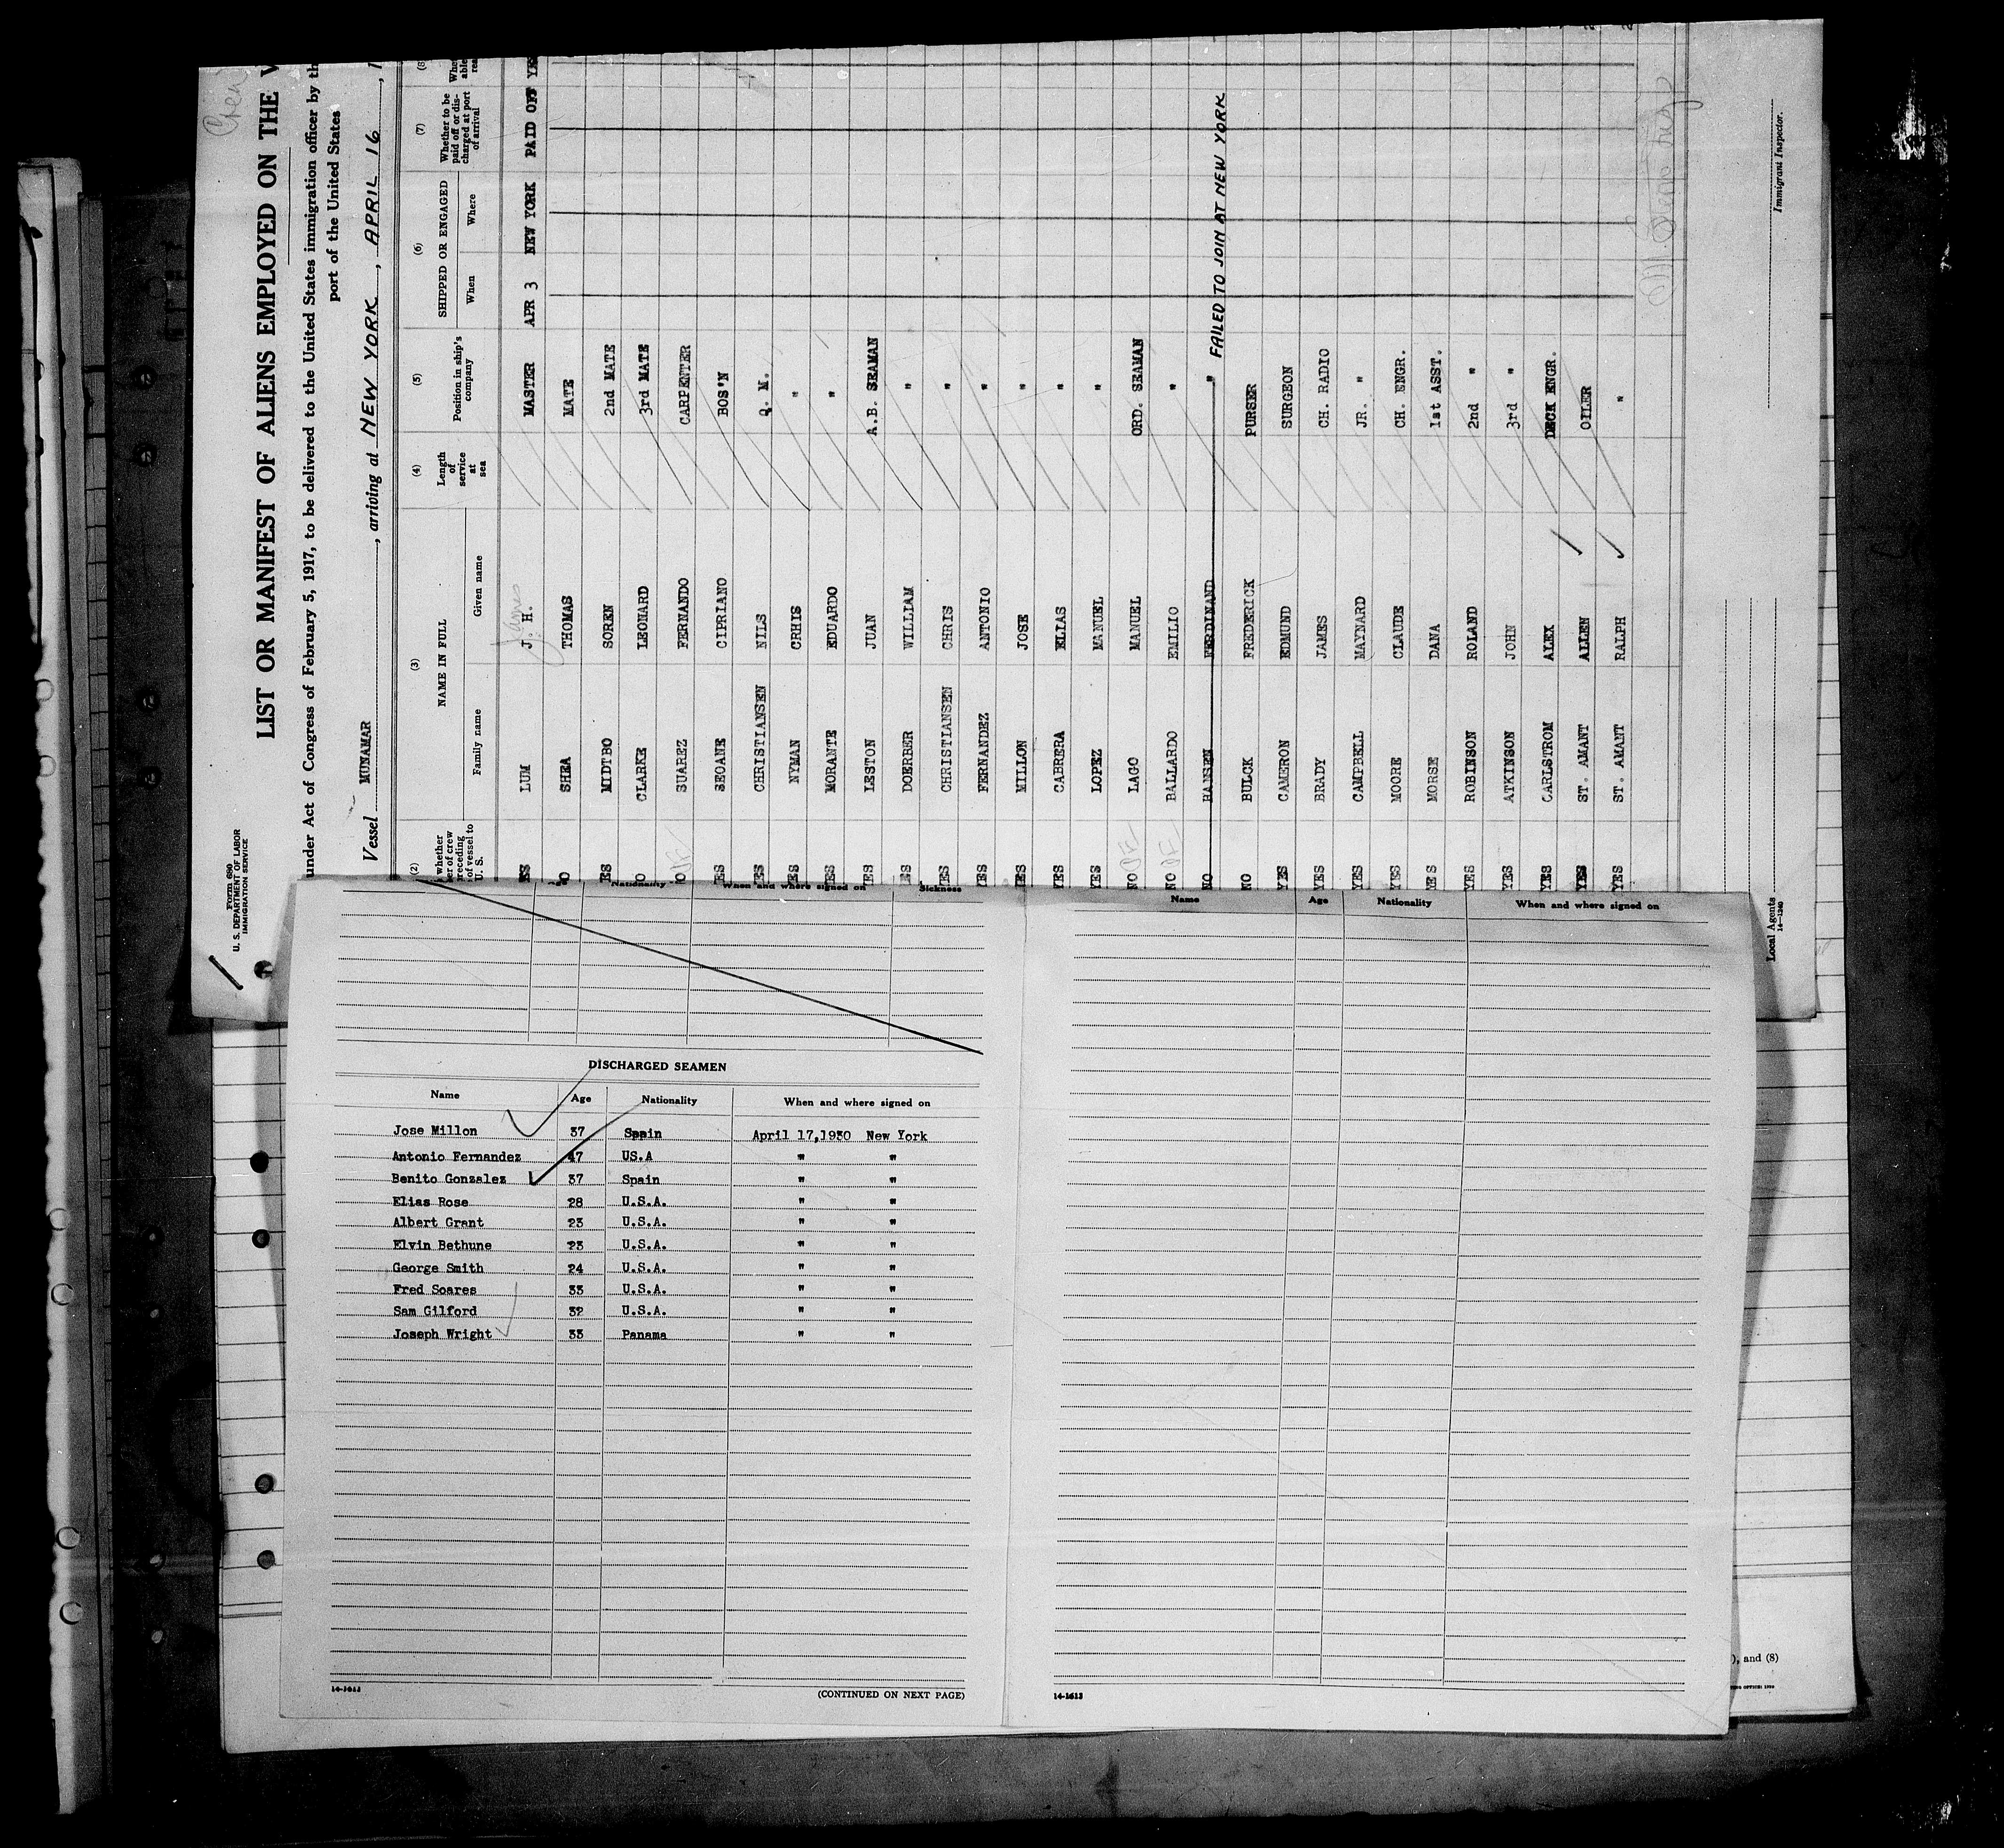 Form 680
U. S. DEPARTMENT OF LABOR
IMMIGRATION SERVICE
LIST OR MANIFEST OF ALIENS EMPLOYED ON THE
under Act of Congress of February 5, 1917, to be delivered to the United States immigration officer by th
port of the United States
Vessel MUNAMAR, arriving at NEW YORK, APRIL 16, 1
(2) (3) (4) (5) (6) (7) (8)
whether
er of crew
receding
of vessel to
U. S.
NAME IN FULL
Family name Given name
Length
of
service
at
sea
Position in ship's
company
SHIPPED OR ENGAGED
When Where
Whether to be
paid off or dis-
charged at port
of arrival
ES LUM J. H. James MASTER APR 3 NEW YORK PAID OFF YE
O SHEA THOMAS MATE
ES MIDTBO SOREN 2nd MATE
O CLARKE LEONARD 3rd MATE
O SUAREZ FERNANDO CARPENTER
ES SEOANE CIPRIANO BOS'N
ES CHRISTIANSEN NILS Q. M.
ES NYMAN CRHIS "
ES MORANTE EDUARDO "
ES LESTON JUAN A.B. SEAMAN
ES DOERBER WILLIAM "
ES CHRISTIANSEN CHRIS "
ES FERNANDEZ ANTONIO "
YES MILLON JOSE "
YES CABRERA ELIAS "
YES LOPEZ MANUEL "
NO LAGO MANUEL ORD. SEAMAN
NO BALLARDO EMILIO "
NO HANSEN FERDINAND " FAILED TO JOIN AT NEW YORK
NO BULCK FREDERICK PURSER
YES CAMERON EDMUND SURGEON
YES BRADY JAMES CH. RADIO
YES CAMPBELL MAYNARD JR. "
YES MOORE CLAUDE CH. ENGR.
YES MORSE DANA 1st ASST.
YES ROBINSON ROLAND 2nd "
YES ATKINSON JOHN 3rd "
YES CARLSTROM ALEX DECK ENGR.
YES ST. AMANT ALLEN OILER
YES ST. AMANT RALPH "
Local Agents
14—1240
Immigrant Inspector.
Age Nationality When and where signed on Sickness
DISCHARGED SEAMEN
Name Age Nationality When and where signed on
Jose Millon 37 Spain April 17,1930 New York
Antonio Fernandez 47 US.A " "
Benito Gonzalez 37 Spain " "
Elias Rose 28 U.S.A. " "
Albert Grant 23 U.S.A. " "
Elvin Bethune 23 U.S.A. " "
George Smith 24 U.S.A. " "
Fred Soares 33 U.S.A. " "
Sam Gilford 32 U.S.A. " "
Joseph Wright 33 Panama " "
14-1613
(CONTINUED ON NEXT PAGE)
Name Age Nationality When and where signed on
14-1613
), and (8)